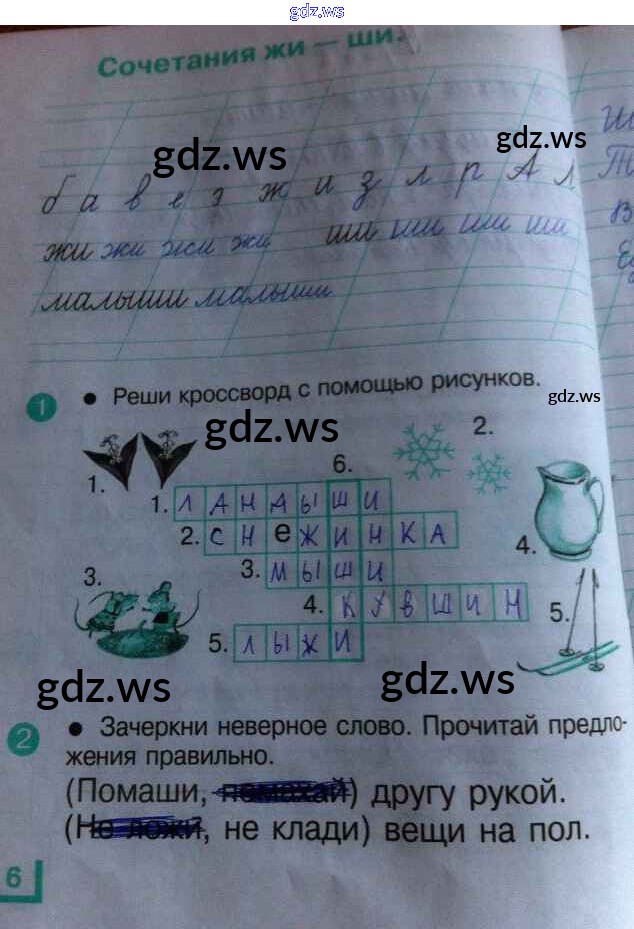 gdz.ws
Сочетания жи — ши.
gdz.ws
gdz.ws
б а в е з ж и з л р А л
жи жи жи жи ши ши ши ши
малыши малыши
1 • Реши кроссворд с помощью рисунков.
gdz.ws
gdz.ws
2.
6.
1.
1. ЛАНДЫШИ
2. СНеЖИНКА
4.
3.
3. МЫШИ
4. КУВШИН
5.
5. ЛЫЖИ
gdz.ws
gdz.ws
2 • Зачеркни неверное слово. Прочитай предло-
жения правильно.
(Помаши, помахай) другу рукой.
(Не ложи, не клади) вещи на пол.
6